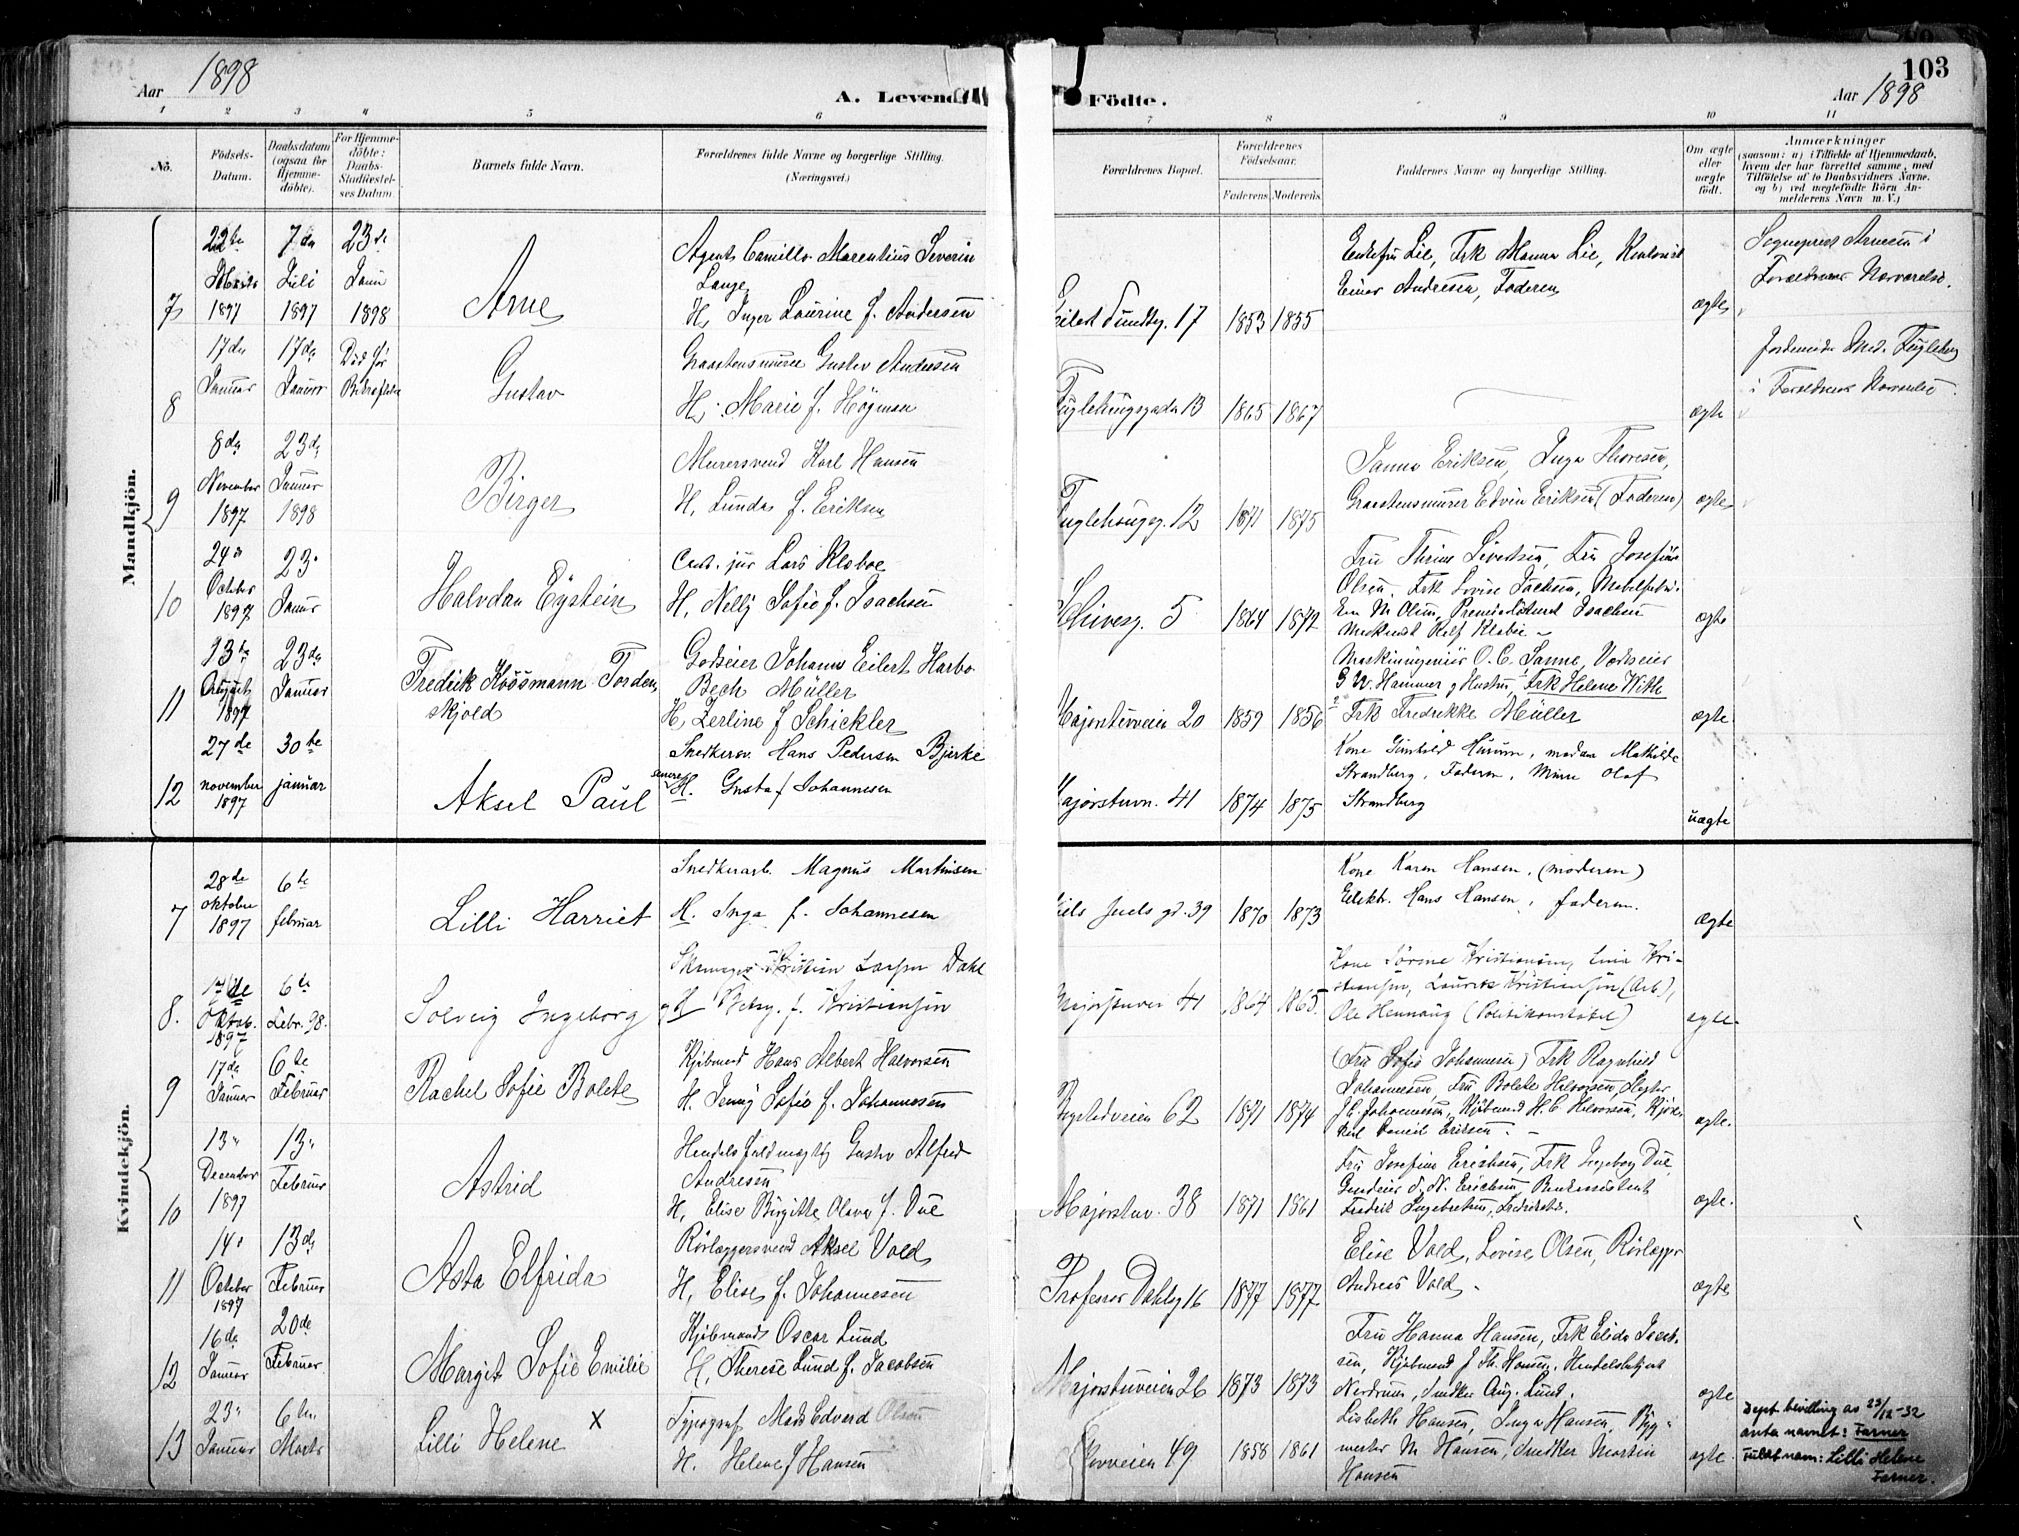 103
Aar 1898
A. Levende Fødte.
Aar 1898
1 2 3 4 5 6 7 8 9 10 11
No.
Fødsels-Datum.
Daabsdatum (ogsaa for Hjemmedøbte).
For Hjemmedøbte: Daabs-Stadfæstelses Datum.
Barnets fulde Navn.
Forældrenes fulde Navne og borgerlige Stilling. (Næringsvei.)
Forældrenes Bopæl.
Forældrenes Fødselsaar.
Faderens. Moderens.
Faddernes Navne og borgerlige Stilling.
Om ægte eller uægte født.
Anmærkninger
(saasom: a) i Tilfælde af Hjemmedaab,
hvem der har forrettet samme, med
Tilføielse af to Daabsvidners Navne,
og b) ved uægtefødte Børn An-
melderens Navn m. V.)
Mandkjøn.
7 22de 1897 7de Juli 1897 23de Januar 1898
Arne
Agent Camillo Marentius Severin
Lange
H. Inger Laurine f. Andersen
Eilert Sundtsg. 17 1853 1855
Enkefru Lie, Frk Manna Lie,
Einar Andresen, Faderen
ægte
Sognepræst Arnesen i
Forældrenes Nærværelse.
8 17de Januar 17de Januar Død før Bekræftelse
Gustav
Graastensmurer Gustav Andersen
H. Marie f. Högman
Fuglehaugsgada 13 1865 1867
ægte
Jordemoder Mrd. Fugleberg
i Forældrenes Nærværelse
9 8de November 1897 23de Januar 1898
Birger
Murersvend Karl Hansen
H. Lunda f. Eriksen
Fuglehaugsg. 12 1871 1875
Janna Eriksen, Inga Thoresen,
Graastensmurer Edvin Eriksen (Faderen)
ægte
10 24de October 1897 23. Januar
Halvdan Eystein
Cand. jur Lars Klaboe
H. Nelly Sofie f. Isachsen
Schivesg. 5 1864 1872
Fru Thrine Sivertsen, Fru Josefine
Olsen, Frk Lovise Isachsen, Møbelfabr.
Em M Olsen, Premierløitnant Isachsen
Rolf Klaboe
ægte
11 1897 23de Januar
Fredrik Kössmann Torden
skjold
Godseier Johannes Eilert Harbo
Bech Müller
H. Zerline f Schickler
Majorstuveien 20 1859 1856
Maskiningeniør O. C. Sanne, Værkseier
G W. Hammer og Hustru, Frk Helene With
Frk Fredrikke Müller
ægte
12 27de november 1897 30te januar
Aksel Paul
Snedkersv. Hans Pedersen Bjerke
H. Gusta f Johannesen
Majorstuvn. 41 1874 1875
Kone Gunhild Hurum, madam Mathilde
Strandberg, Faderen, Murer Olaf
Strandberg
uægte
Kvindekjøn.
7 28de oktober 1897 6te februar
Lilli Harriet
Snedkerarb. Magnus Martinsen
H. Inga f. Johannesen
Niels Juels gd. 39 1870 1873
Kone Karen Hansen, (moderen)
Elektr. Hans Hansen, faderen.
ægte
8. 17de Oktob. 1897 6te Febr. 98.
Solveig Ingeborg
Skomager Kristian Larsen Dahl
H Betsy f. Kristiansen
Majorstuver 41 1864 1865.
Kone Sørine Kristiansen, Lina Kri-
stiansen, Laurits Kristiansen (Arb),
Ole Hennaug (Politikonstabel)
ægte.
9 17de Januar 6te Februar
Rachel Sofie Bolete
Kjøbmand Hans Albert Halvorsen
H. Jenny Sofie f. Johannesen
Bogstadveien 62 1871 1874
(Fru Sofie Johannesen) Frk Ragnhild
Johannesen, Fru Bolete Halvorsen, Slagter
J. C. Johannesen, Kjøbmand H. C Halvorsen,
Eriksen.
ægte.
10 13. December 1897 13. Februar
Astrid
Handelsfuldmægtig Gustav Alfred
Andresen
H. Elise Birgitte Olava f. Due
Majorstuv. 38 1871 1861
Fru Josefine Erichsen, Frk Ingeborg Due
Gaardeier Erichsen, Bankassistent
Fredrik Ingebretsen,
ægte.
11 14. October 1897 13de Februar
Asta Elfrida
Rørlæggersvend Aksel Vold
H. Elise f. Johannesen
Professor Dahlsg 16 1877 1877
Elise Vold, Lovise Olsen, Rørlægger
Andreas Vold.
ægte
12 16de Januar 20de Februar
Margit Sofie Emilie
Kjøbmand Oscar Lund
H. Therese Lund f. Jacobsen
Majorstuveien 26 1873 1873
Fru Hanna Hansen, Frk Elida Jacob-
sen, Kjøbmand J. Th. Hansen, Handelsbetjent
Nordrum, Snedker Aug. Lund.
ægte
13 23. Januar 6te Marts
Lilli Helene x
Typograf Mads Edvard Olsen
H. Helene f Hansen
49 1858 1861
Lisbeth Hansen, Inga Hansen, Byg-
mester M Hansen, Snedker Martin
Hansen
ægte.
Dept bevilling av 23/12-32
anta navnet: Farner
Fulde navn: Lilli Helene
Farner.